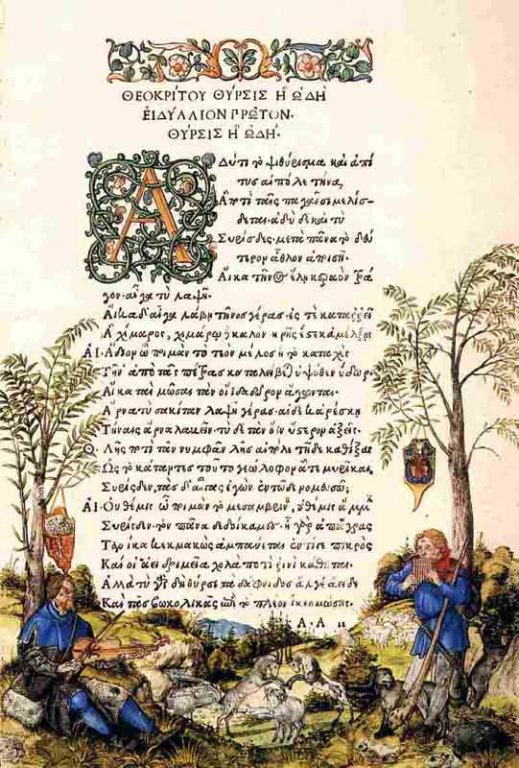 ΘΕΟΚΡΙΤΟΥ ΘΥΡΣΙΣ Ἠ ΩΔΗ
ΕΙΔΥΛΛΙΟΝ ΠΡΩΤΟΝ.
ΘΥΡΣΙΣ Ἠ ΩΔΗ.
ΑΔύ τι τὸ ψιθύρισμα καὶ ἁ πί
τυς αἰπόλε τήνα,
Ἃ ποτὶ ταῖς παγαῖσι μελίσ-
δεται. ἁδὺ δὲ καὶ τὺ
Συρίσδες. μετὰ πᾶνα τὸ δεύ
τερον ἆθλον ἀποισῇ.
Αἴκα τῆνος ἕλῃ κεραὸν τρά
γον. αἶγα τὺ λαψῇ.
Αἴκα δ' αἶγα λάβῃ τῆνος γέρας. ἐς τὲ καταρρεῖ
Ἁ χίμαρος. χιμάρω δὲ καλὸν κρῆς ἔστε κ' ἀμέλξῃς
ΑΙ. Ἅδιον ὦ ποιμὰν τὸ τεὸν μέλος ἢ τὸ καταχὲς
Τῆν' ἀπὸ τᾶς πέτρας καταλείβεται ὑψόθεν ὕδωρ.
Αἴκα ταὶ μῶσαι τὰν οἴιδα δῶρον ἄγωνται.
Ἄρνα τὺ σακίταν λαψῇ γέρας. αἰ δέ κ' ἀρέσκῃ
Τήναις ἄρνα λαβεῖν. τὺ δὲ τὰν ὄϊν ὕστερον ἀξεῖς.
Θ. Λῇς ποτὶ τᾶν νυμφᾶν λῇς αἰπόλε τῇδε καθίξας
Ὡς τὸ κάταντες τοῦτο γεώλοφον ἅτε μυρῖκαι,
Συρίσδεν. τὰς δ' αἶγας ἐγὼν ἐν τῷδε νομευσῶ;
ΑΙ. Οὐ θέμις ὦ ποιμὰν τὸ μεσαμβρινὸν. οὐ θέμις ἄμμιν
Συρίσδεν. τὸν πᾶνα δεδοίκαμες. ἦ γὰρ ἀπ' ἄγρας
Τανίκα κεκμακὼς ἀμπαύεται ἐντί γε πικρὸς
Καί οἱ ἀεὶ δριμεῖα χολὰ ποτὶ ῥινὶ κάθηται.
Ἀλλὰ τὺ γὰρ δὴ θύρσι τὰ δάφνιδος ἄλγε' ἄειδες
Καὶ τᾶς βωκολικᾶς ἐπὶ τὸ πλέον ἵκεο μώσης.
Α.Α ii